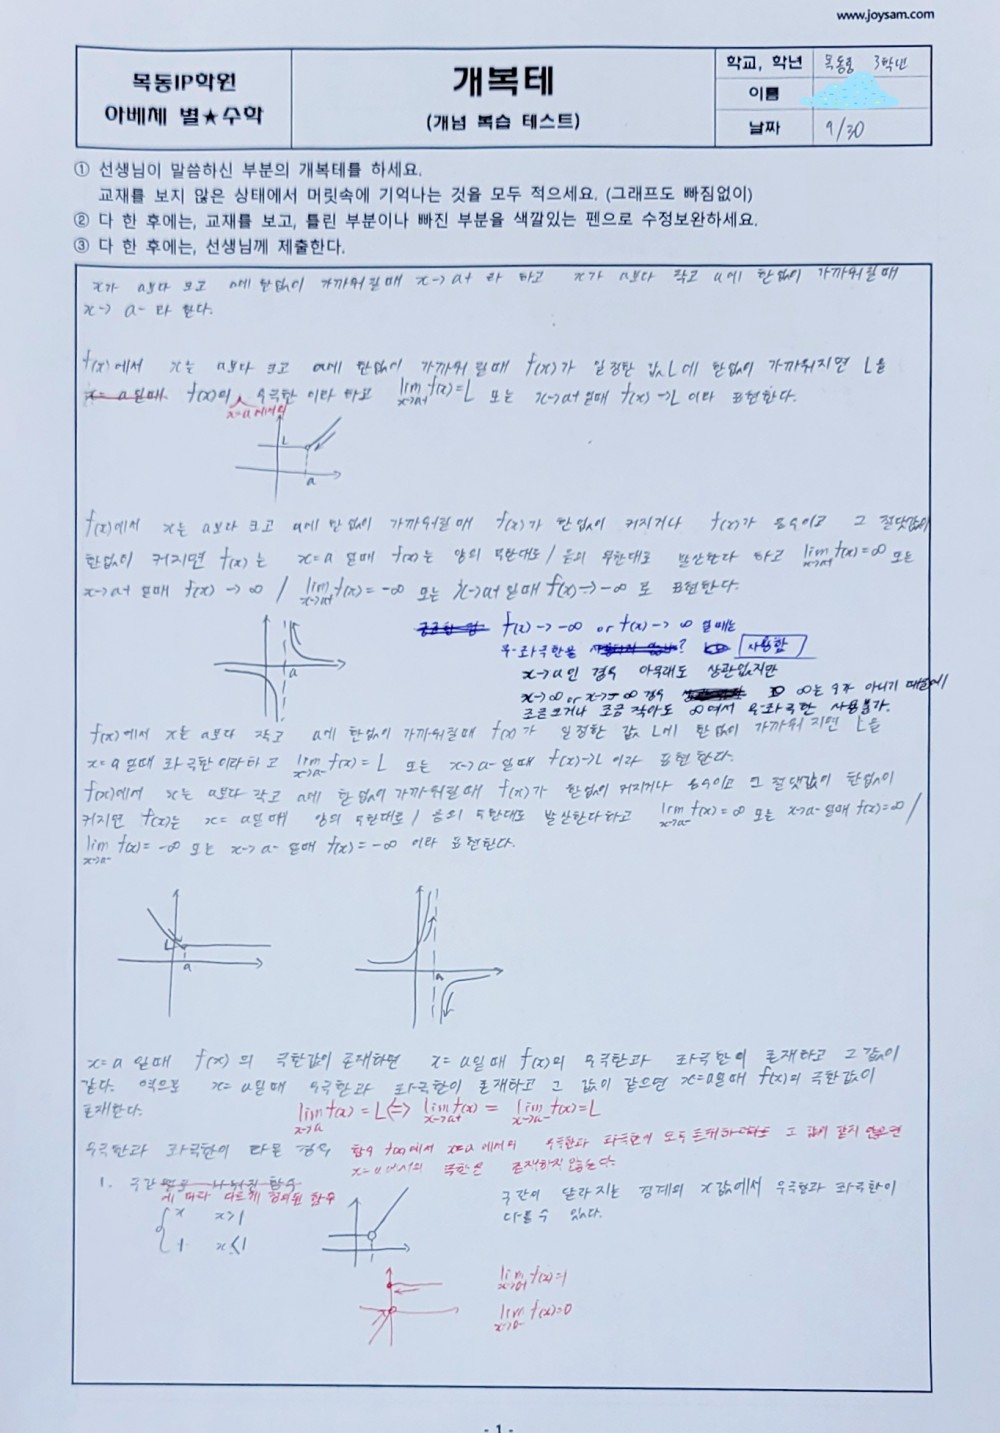 www.joysam.com
목동IP학원
아베체 별★수학
개복테
(개념 복습 테스트)
학교, 학년 목동중 3학년
이름
날짜 9/30
① 선생님이 말씀하신 부분의 개복테를 하세요.
교재를 보지 않은 상태에서 머릿속에 기억나는 것을 모두 적으세요. (그래프도 빠짐없이)
② 다 한 후에는, 교재를 보고, 틀린 부분이나 빠진 부분을 색깔있는 펜으로 수정보완하세요.
③ 다 한 후에는, 선생님께 제출한다.
x가 a보다 크고 a에 한없이 가까워질때 x→a+ 라 하고 x가 a보다 작고 a에 한없이 가까워질때
x→ a- 라 한다.
f(x)에서 x는 a보다 크고 a에 한없이 가까워질때 f(x)가 일정한 값 L에 한없이 가까워지면 L을
x=a일때 f(x)의 우극한 이라 하고 lim x→a+ f(x)=L 또는 x→a+일때 f(x)→L 이라 표현한다.
x=a에서의
L
a
f(x)에서 x는 a보다 크고 a에 한없이 가까워질때 f(x)가 한없이 커지거나 f(x)가 음수이고 그 절댓값이
한없이 커지면 f(x)는 x=a일때 f(x)는 양의 무한대로/음의 무한대로 발산한다 하고 lim x→a+ f(x)=∞ 또는
x→a+ 일때 f(x)→∞ / lim x→a+ f(x)=-∞ 또는 x→a+일때 f(x)→-∞로 표현한다.
a
f(x)→-∞ or f(x)→∞ 일때는
우·좌극한을 ? 사용함
x→a인 경우 아무래도 상관없지만
x→∞ or x→-∞ 경우 ∞는 수가 아니기 때문에
조금크거나 조금 작아도 ∞여서 우·좌극한 사용불가.
f(x)에서 x는 a보다 작고 a에 한없이 가까워질때 f(x)가 일정한 값 L에 한없이 가까워 지면 L을
x=a일때 좌극한이라하고 lim x→a- f(x)=L 또는 x→a-일때 f(x)→L 이라 표현한다.
f(x)에서 x는 a보다 작고 a에 한없이 가까워질때 f(x)가 한없이 커지거나 음수이고 그 절댓값이 한없이
커지면 f(x)는 x=a일때 양의 무한대로/음의 무한대로 발산한다하고 lim x→a- f(x)=∞ 또는 x→a-일때 f(x)=∞/
lim x→a- f(x)=-∞ 또는 x→a-일때 f(x)=-∞ 이라 표현한다.
L
a
a
x=a일때 f(x)의 극한값이 존재하면 x=a일때 f(x)의 우극한과 좌극한이 존재하고 그 값이
같다. 역으로 x=a일때 우극한과 좌극한이 존재하고 그 값이 같으면 x=a일때 f(x)의 극한값이
존재한다. lim x→a f(x)=L⇔ lim x→a+ f(x)= lim x→a- f(x)=L
우극한과 좌극한이 다른 경우 함수 f(x)에서 x=a에서의 우극한과 좌극한이 모두 존재하더라도 그 값이 같지 않으면
x=a에서의 극한은 존재하지 않는다.
1. 구간 별로 나눠진 함수
에 따라 다르게 정의된 함수
x x>1
1 x≤1
1
구간이 달라지는 경계의 x값에서 우극한과 좌극한이
다를 수 있다.
lim x→0+ f(x)=1
lim x→0- f(x)=0
- 1 -